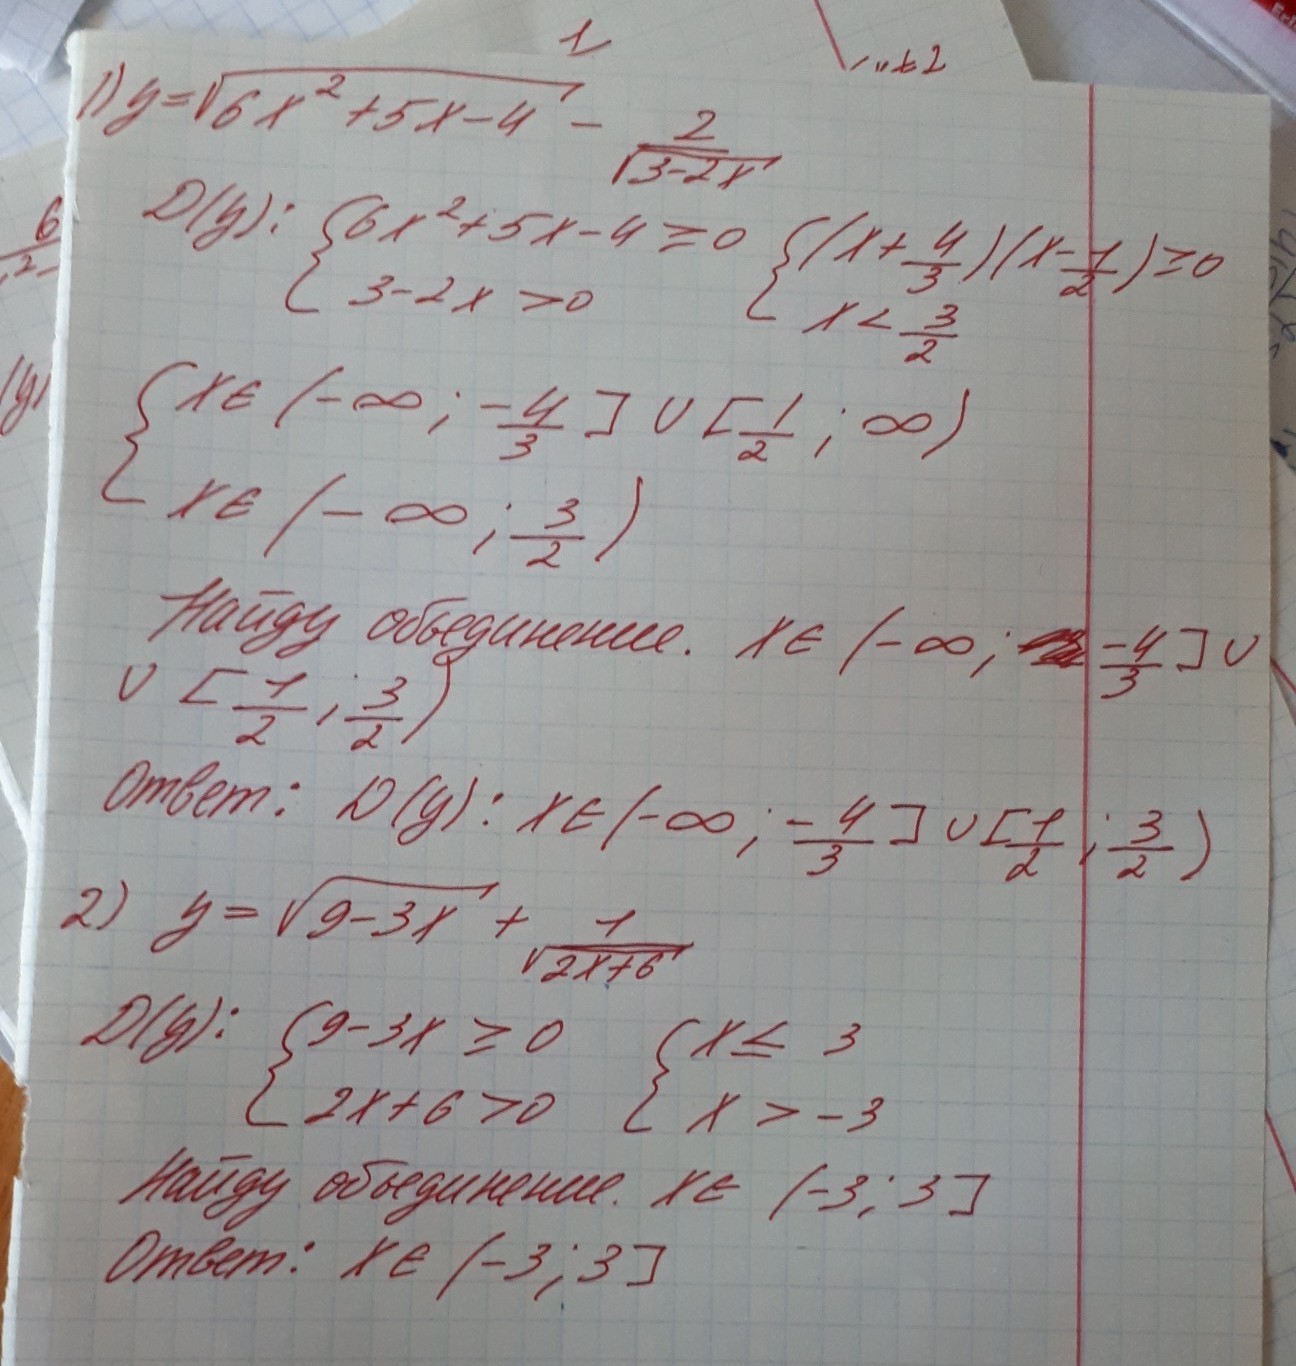 1
1) y = √(6x² + 5x - 4) - 2/√(3-2x)
D(y): { 6x² + 5x - 4 ≥ 0 { (x + 4/3)(x - 1/2) ≥ 0
3 - 2x > 0 x < 3/2
{ x ∈ (-∞; -4/3] ∪ [1/2; ∞)
x ∈ (-∞; 3/2)
Найду объединение. x ∈ (-∞; -4/3] ∪
∪ [1/2; 3/2)
Ответ: D(y): x ∈ (-∞; -4/3] ∪ [1/2; 3/2)
2) y = √(9-3x) + 1/√(2x+6)
D(y): { 9-3x ≥ 0 { x ≤ 3
2x+6 > 0 x > -3
Найду объединение. x ∈ (-3; 3]
Ответ: x ∈ (-3; 3]